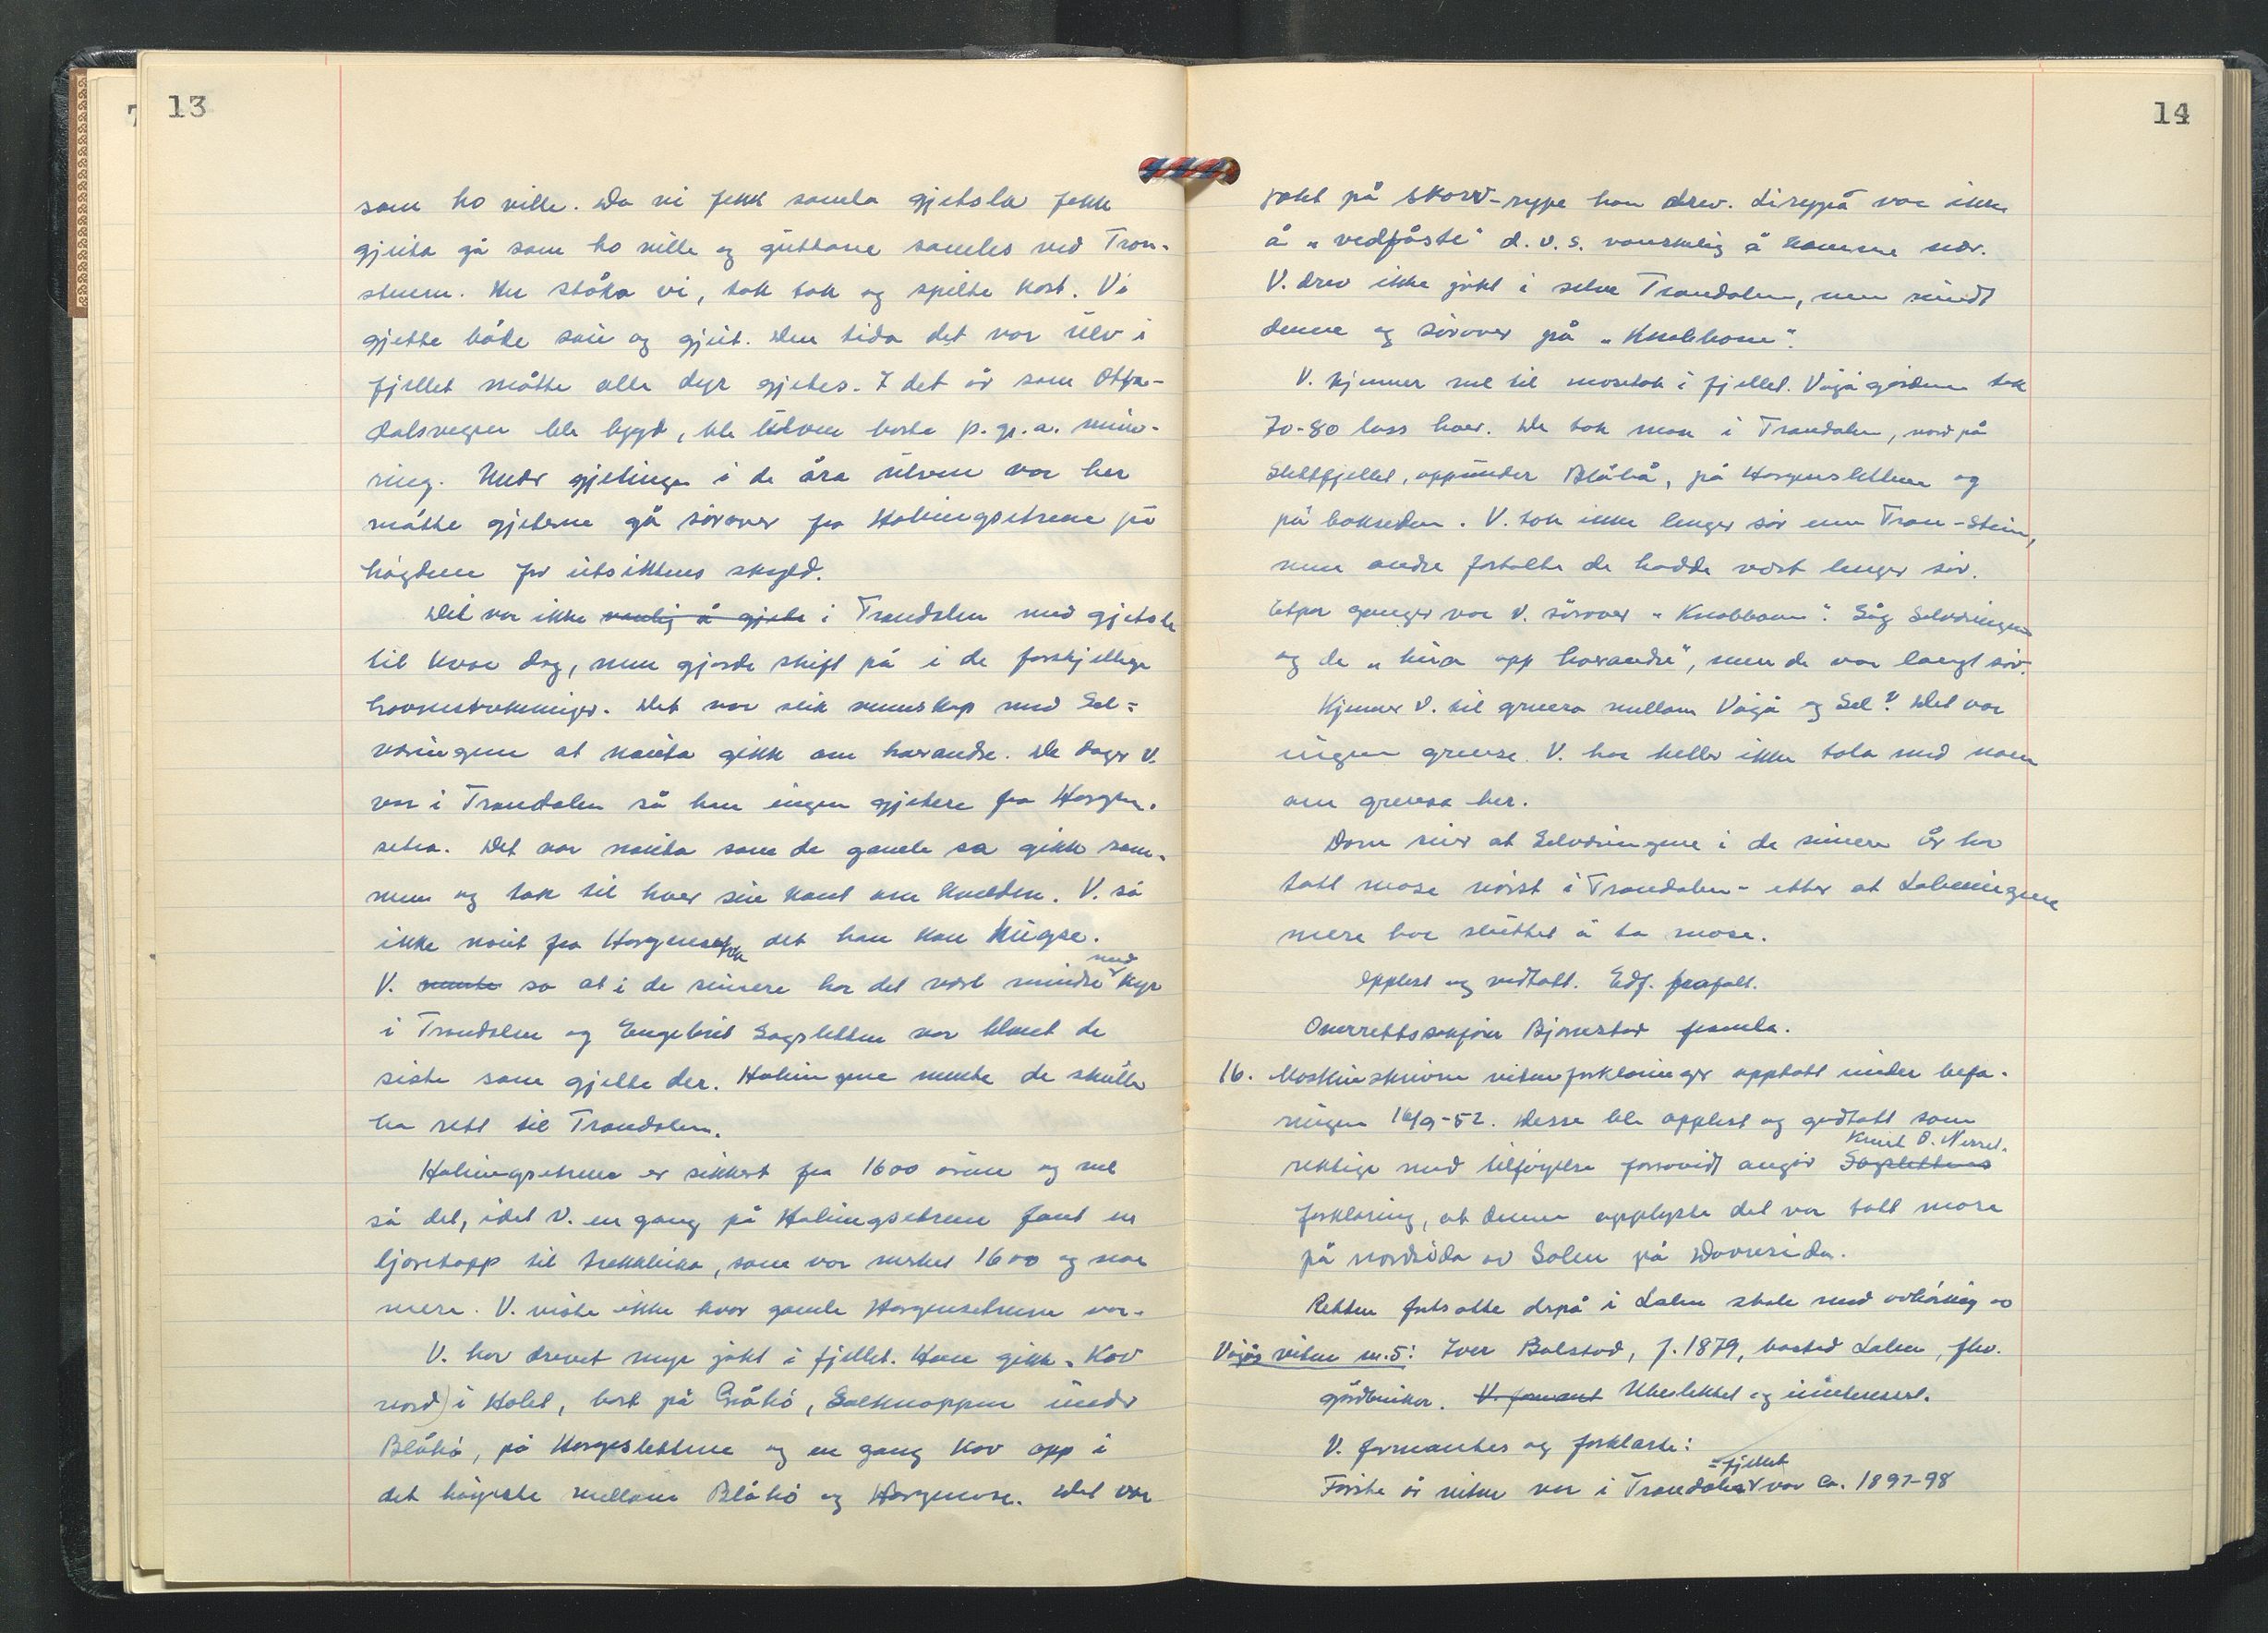 13
som ho ville. Da vi fekk samla gjetsla fekk
gjeita gå som ho ville og guttane samles ved Tron-
steinen. Her ståka vi, tok tak og spilte kort. Vi
gjette både sau og gjeit. Den tida det var ulv i
fjellet måtte alle dyr gjetes. I det år som Otta-
dalsvegen ble bygd, ble ulven borte p. gr. a. mine-
ring. Under gjetingen i de åra ulven var her
måtte gjeterne gå sørover fra Holungsetrene på
högdene for utsiktens skyld.
Det var ikke vanlig å gjete i Trondalen med gjetsle
til kvar dag, men gjorde skift på i de forskjellige
havnestrekninger. Det var slik vennskap med Sel-
væringene at nauta gikk om hverandre. De dager V.
var i Trondalen så han ingen gjetere fra Horgen-
setra. Det var nauta som de gamle sa gikk sam-
men og tok til hver sin kant om kvelden. V. så
ikke naut fra Horgensetra det han kan hugse.
V. mente sa at i de seinere har det vært mindre med kyr
i Trondalen og Engebret Sagsletten var blant de
siste som gjette der. Holungene mente de skulle
ha rett til Trondalen.
Holungsetrene er sikkert fra 1600 årene og vel
så det, idet V. en gang på Holungsetrene fant en
ljoretapp til trekkluka, som var merket 1600 og noe
mere. V. viste ikke hvor gamle Horgensetrene var.
V. har drevet mye jakt i fjellet. Han gikk "Kov
nord) i Holet, bort på Gråhö, Salknappen under
Blåhö, på Horgeslettene og en gang kov opp i
det høgeste mellom Blåhö og Horgenose. Det var
14
jakt på skorv-rype han drev. Lirypå var ikke
å "vedfåste" d.v.s. vanskelig å komme nær.
V. drev ikke jakt i selve Trondalen, men rundt
denne og sørover på "Knobbane".
V. kjenner vel til mosetak i fjellet. Vågågardene tok
70-80 lass hver. De tok mose i Trondalen, nord på
Slettfjellet, oppunder Blåhå, på Horgenslettene og
på baksiden. V. tok ikke lenger sør enn Tron-Stein,
men andre fortalte de hadde vært lenger sør.
Etpar ganger var V. sörover "Knobbane". Såg Selværingene
og de "hua opp hverandre", men de var langt sör.
Kjenner V. til grensa mellom Vågå og Sel? Det var
ingen grense. V. har heller ikke tala med noen
om grensa her.
Dom sier at Selværingene i de seinere år har
tatt mose nørst i Trondalen - etter at Lalmingene
mere har sluttet å ta mose.
Opplest og vedtatt. Edf. frafalt.
Overrettssakfører Bjørnstad framla.
16. Maskinskrevne vitneforklaringer opptatt under befa-
ringen 16/9-52. Desse ble opplest og godtatt som
riktige med tilføyelse forsovidt angår Sagslettens Knut O. Nerset.
forklaring, at denne opplyste det var tatt mose
på nordsida av Solen på Dovresida.
Retten fortsatte derpå i Lalm skole med avhøring av
Vågås vitne nr. 5: Iver Bolstad, f. 1879, bosted Lalm, fhv.
gårdbruker. V. formant Ubeslektet og uinteressert.
V. formantes og forklarte:
Første år vitne var i Trondals-fjellet var ca. 1897-98